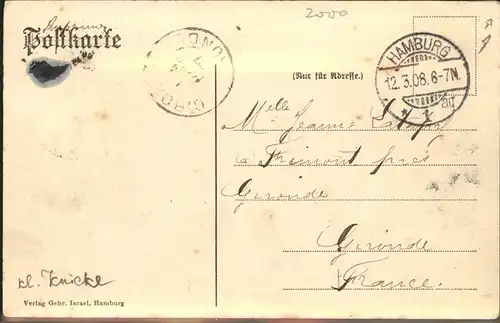 2000
Postkarte
(Nur für Adresse.)
HAMBURG
12.3.08.6-7N.
* 1 *
GIRONDE
Melle Jeanne
à Frimont près
Gironde
Gironde
France.
kl. Knicke
Verlag Gebr. Israel, Hamburg